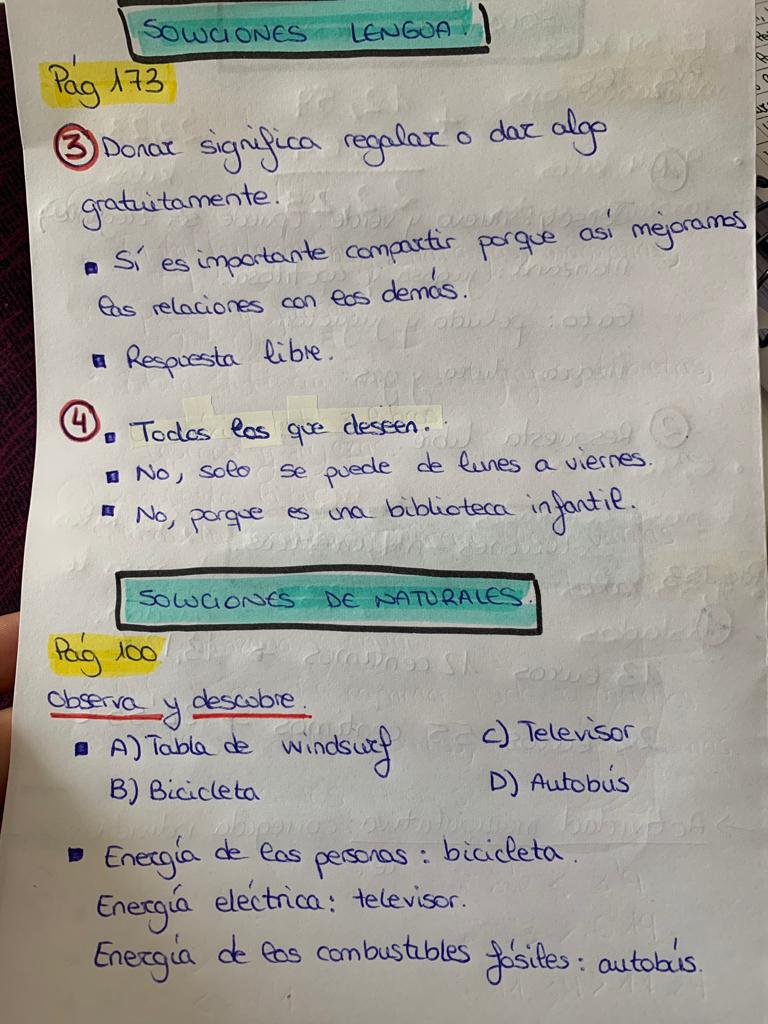 SOLUCIONES LENGUA.
Pág 173
③ Donar significa regalar o dar algo
gratuitamente.
▪ Sí es importante compartir porque así mejoramos
las relaciones con los demás.
▪ Respuesta libre.
④ ▪ Todos los que deseen.
▪ No, solo se puede de lunes a viernes.
▪ No, porque es una biblioteca infantil.
SOLUCIONES DE NATURALES.
Pág 100
Observa y descubre.
▪ A) Tabla de windsurf C) Televisor
B) Bicicleta D) Autobús
▪ Energía de las personas: bicicleta.
Energía eléctrica: televisor.
Energía de los combustibles fósiles: autobús.